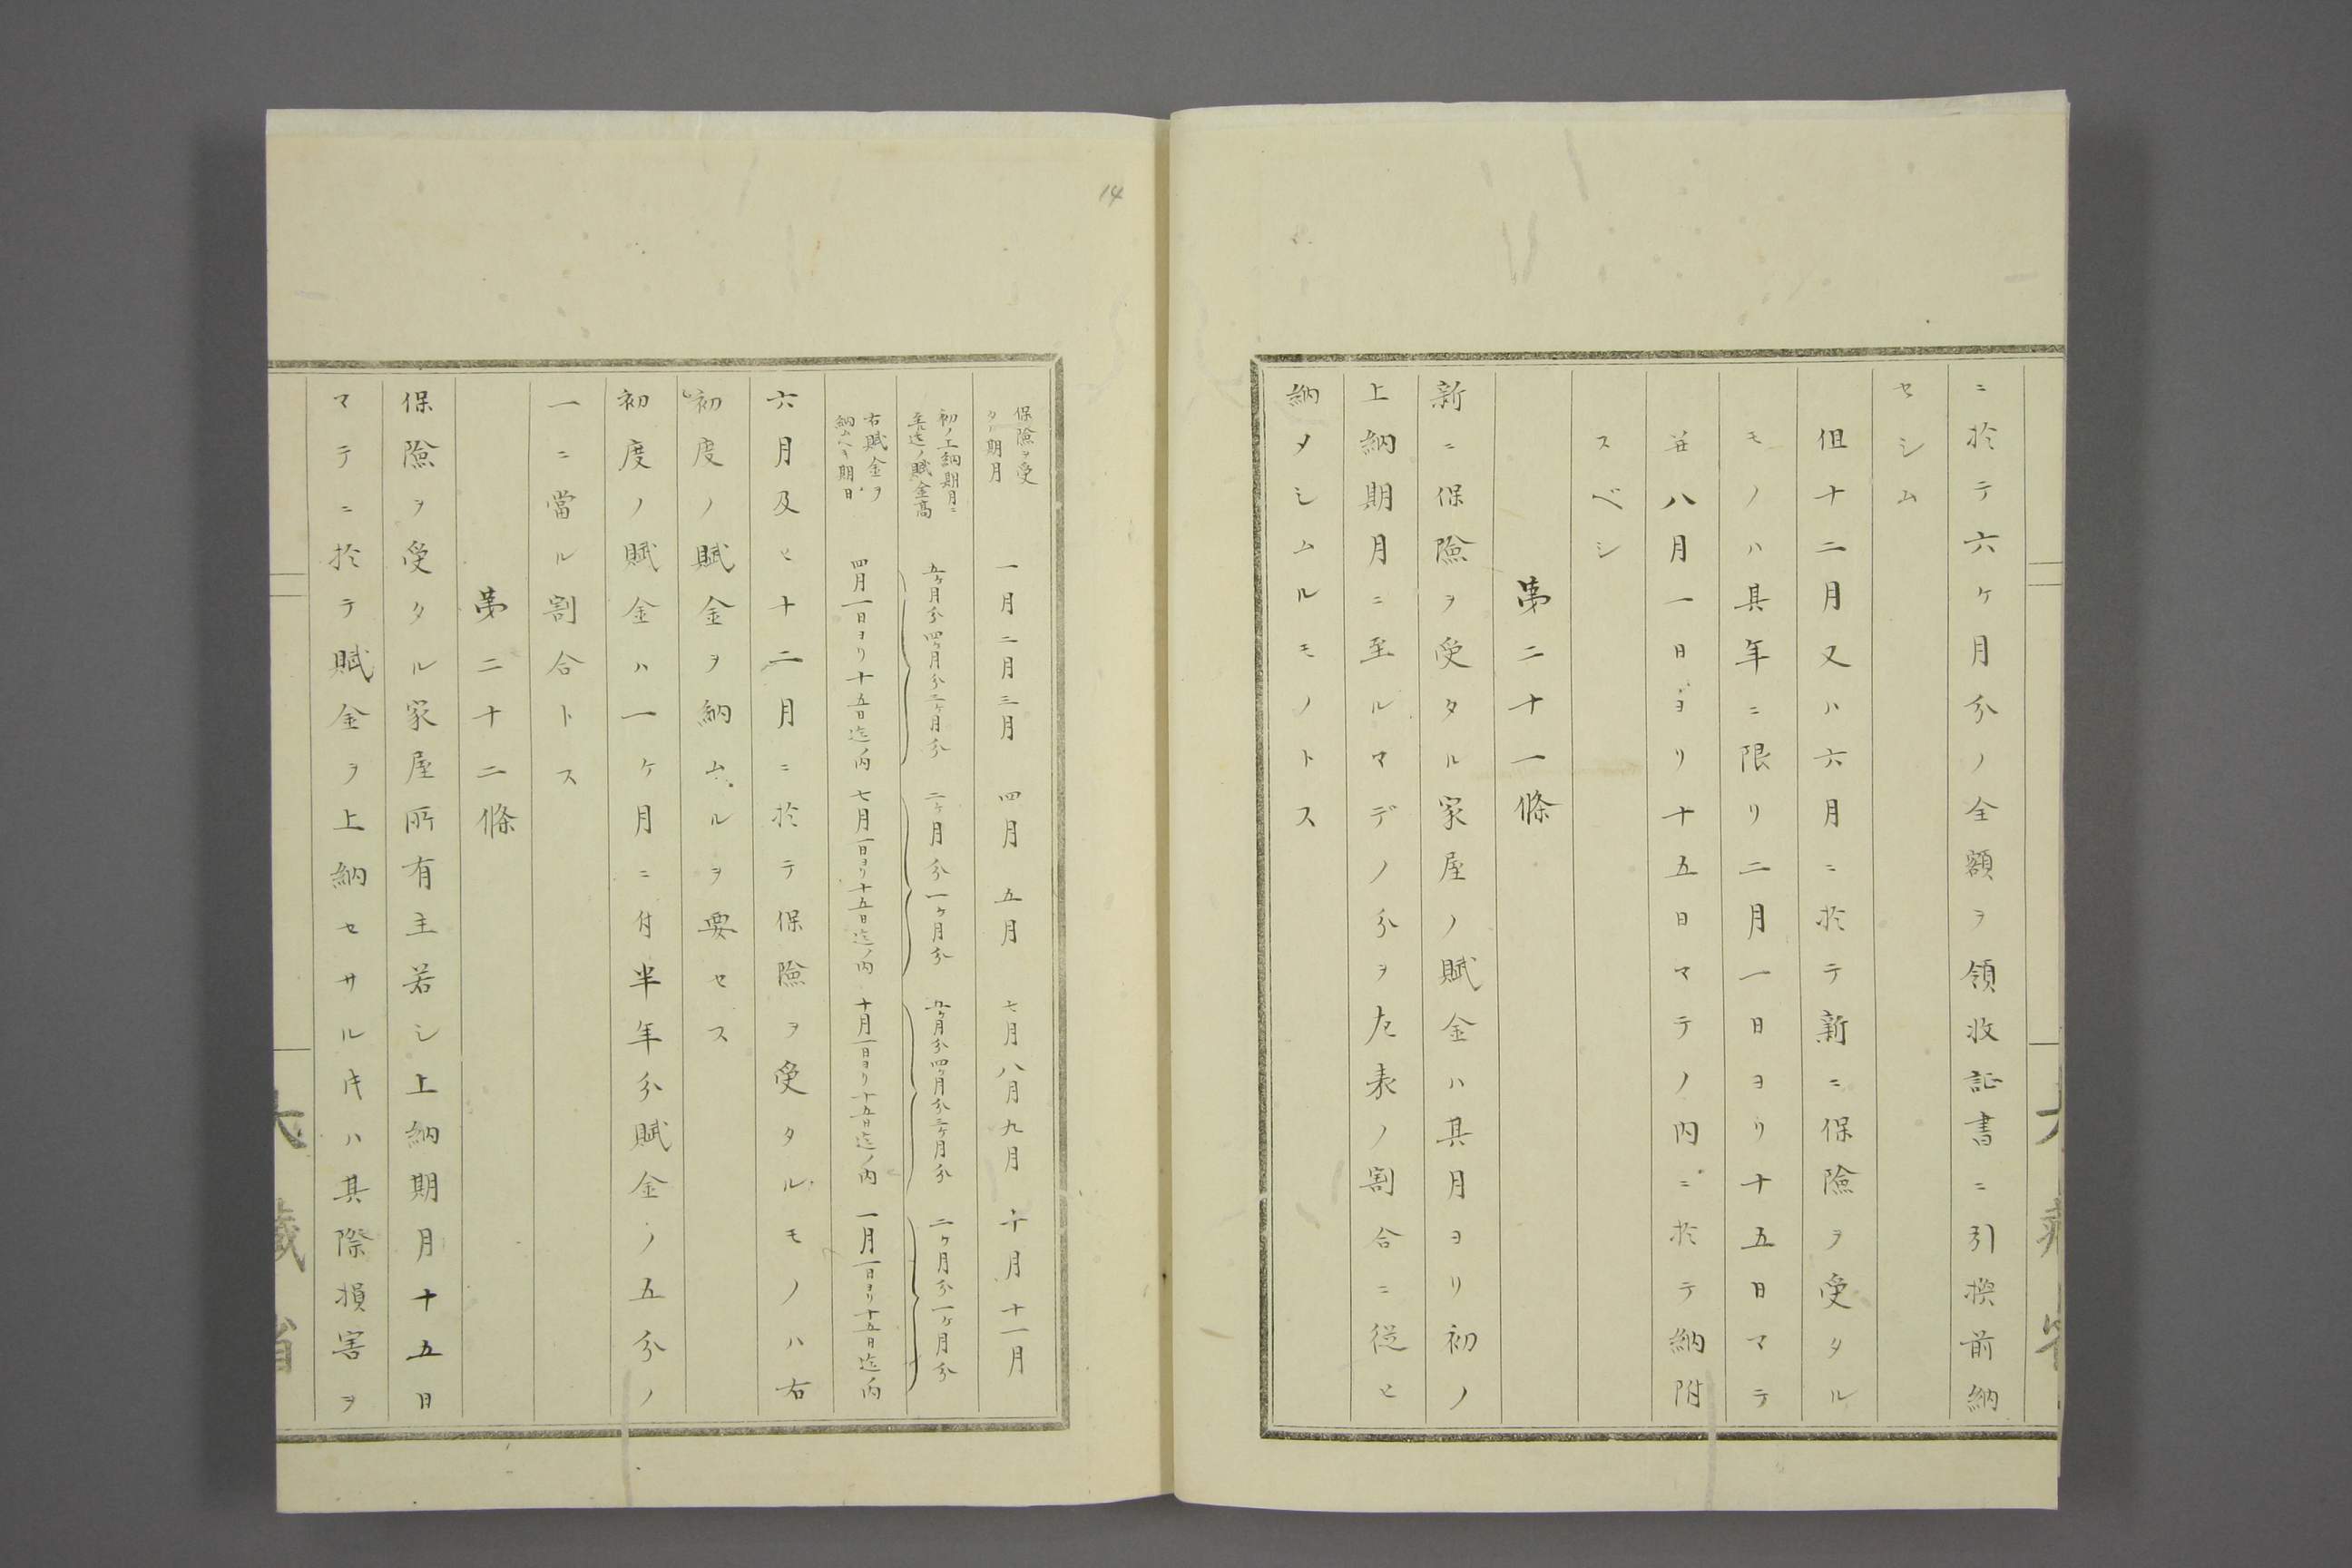 ニ於テ六ケ月分ノ全額ヲ領收証書ニ引換前納
セシム
但十二月又ハ六月ニ於テ新ニ保險ヲ受タル
モノハ其年ニ限リ二月一日ヨリ十五日マテ
並八月一日ヨリ十五日マテノ内ニ於テ納附
スベシ
第二十一條
新ニ保險ヲ受タル家屋ノ賦金ハ其月ヨリ初ノ
上納期月ニ至ルマデノ分ヲ左表ノ割合ニ從ヒ
納メシムルモノトス
14
保險ヲ受
タル期月
一月二月三月 四月 五月 七月八月九月 十月十一月
初ノ上納期月ニ
至迄ノ賦金高
五ケ月分四ケ月分三ケ月分 二ケ月分一ケ月分 五ケ月分四ケ月分三ケ月分 二ケ月分一ケ月分
右賦金ヲ
納ムヘキ期日
四月一日ヨリ十五日迄ノ内 七月一日ヨリ十五日迄ノ内 十月一日ヨリ十五日迄ノ内 一月一日ヨリ十五日迄ノ内
六月及ヒ十二月ニ於テ保險ヲ受タルモノハ右
初度ノ賦金ヲ納ムルヲ要セス
初度ノ賦金ハ一ケ月ニ付半年分賦金ノ五分ノ
一ニ當ル割合トス
第二十二條
保險ヲ受タル家屋所有主若シ上納期月十五日
マテニ於テ賦金ヲ上納セサル𪜈ハ其際損害ヲ
大藏省